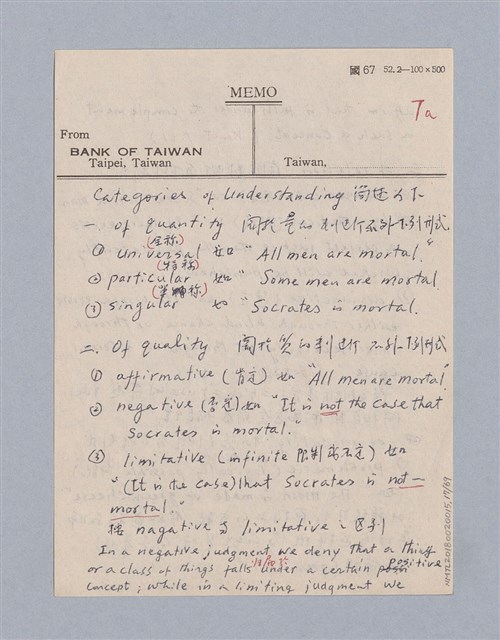 國 67 52.2—100×500
MEMO
7a
From
BANK OF TAIWAN
Taipei, Taiwan Taiwan,
Categories of Understanding 簡述如下
一. Of quantity 關於量的判斷不外下列形式
(全称)
① universal 如 "All men are mortal."
(特称)
② particular 如 "Some men are mortal.
(單稱)
③ singular 如 "Socrates is mortal.
二. Of quality 關於質的判断不外下列形式
① affirmative (肯定) 如 "All men are mortal."
② negative (否定) 如 "It is not the case that
Socrates is mortal."
③ limitative (infinite 限制或不定) 如
"(It is the case) that Socrates is not-
mortal."
按 nagative 与 limitative 之区別
In a negative judgment we deny that a thing
or a class of things falls under a certain positive
concept; while in a limiting judgment we
NMTL20180020015, 17/69